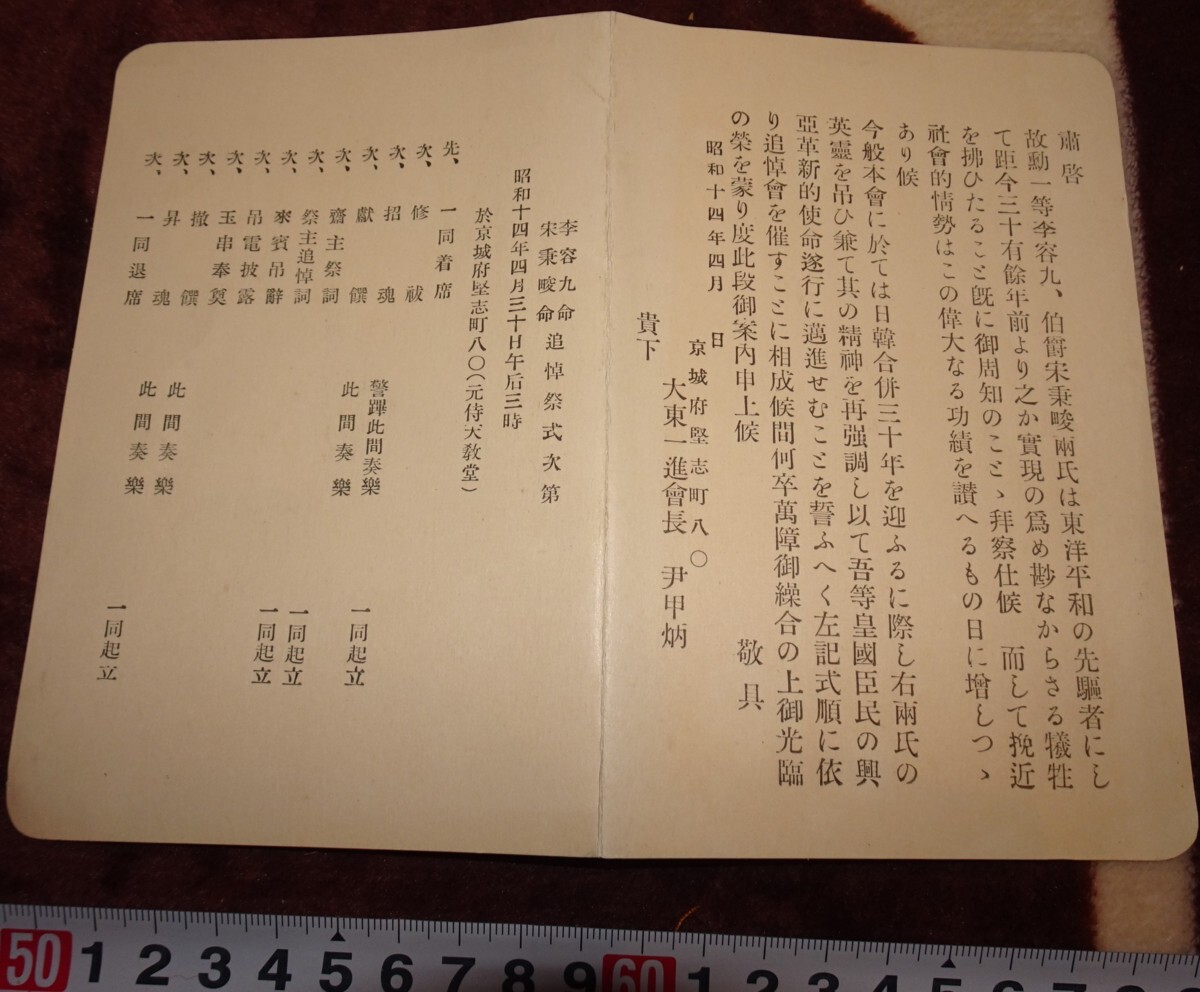 肅啓
故勳一等李容九、伯爵宋秉畯兩氏は東洋平和の先驅者にし
て距今三十有餘年前より之か實現の爲め尠なからさる犧牲
を拂ひたること旣に御周知のことゝ拜察仕候　而して挽近
社會的情勢はこの偉大なる功績を讃へるもの日に增しつゝ
あり候
今般本會に於ては日韓合併三十年を迎ふるに際し右兩氏の
英靈を吊ひ兼て其の精神を再强調し以て吾等皇國臣民の興
亞革新的使命遂行に邁進せむことを誓ふへく左記式順に依
り追悼會を催すことに相成候間何卒萬障御繰合の上御光臨
の榮を蒙り度此段御案內申上候
敬具
昭和十四年四月　日
京城府堅志町八〇
大東一進會長　尹甲炳
貴下
李容九命
宋秉畯命
追悼祭式次第
昭和十四年四月三十日午后三時
於京城府堅志町八〇(元侍天敎堂)
先、一同着席
次、修祓
次、招魂　警蹕此間奏樂　一同起立
次、獻饌　此間奏樂
次、齋主祭詞
次、祭主追悼詞　一同起立
次、來賓吊辭　一同起立
次、吊電披露
次、玉串奉奠
次、撤饌　此間奏樂
次、昇魂　此間奏樂　一同起立
次、一同退席